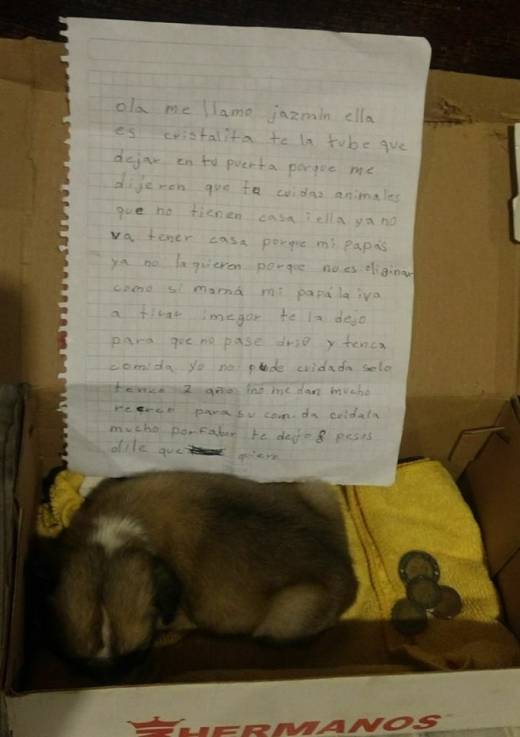 ola me llamo jazmin ella
es cristalita te la tube que
dejar en tu puerta porque me
dijeron que tu cuidas animales
que no tienen casa i ella ya no
va tener casa porque mi papás
ya no la quieren porque no es
como si mamá mi papá la iva
a tirar imegor te la dejo
para que no pase y tenca
comida yo no pude cuidada solo
tenco año no me dan mucho
para su comida cuidala
mucho porfabor te dejo 8 pesos
dile que quiero
HERMANOS